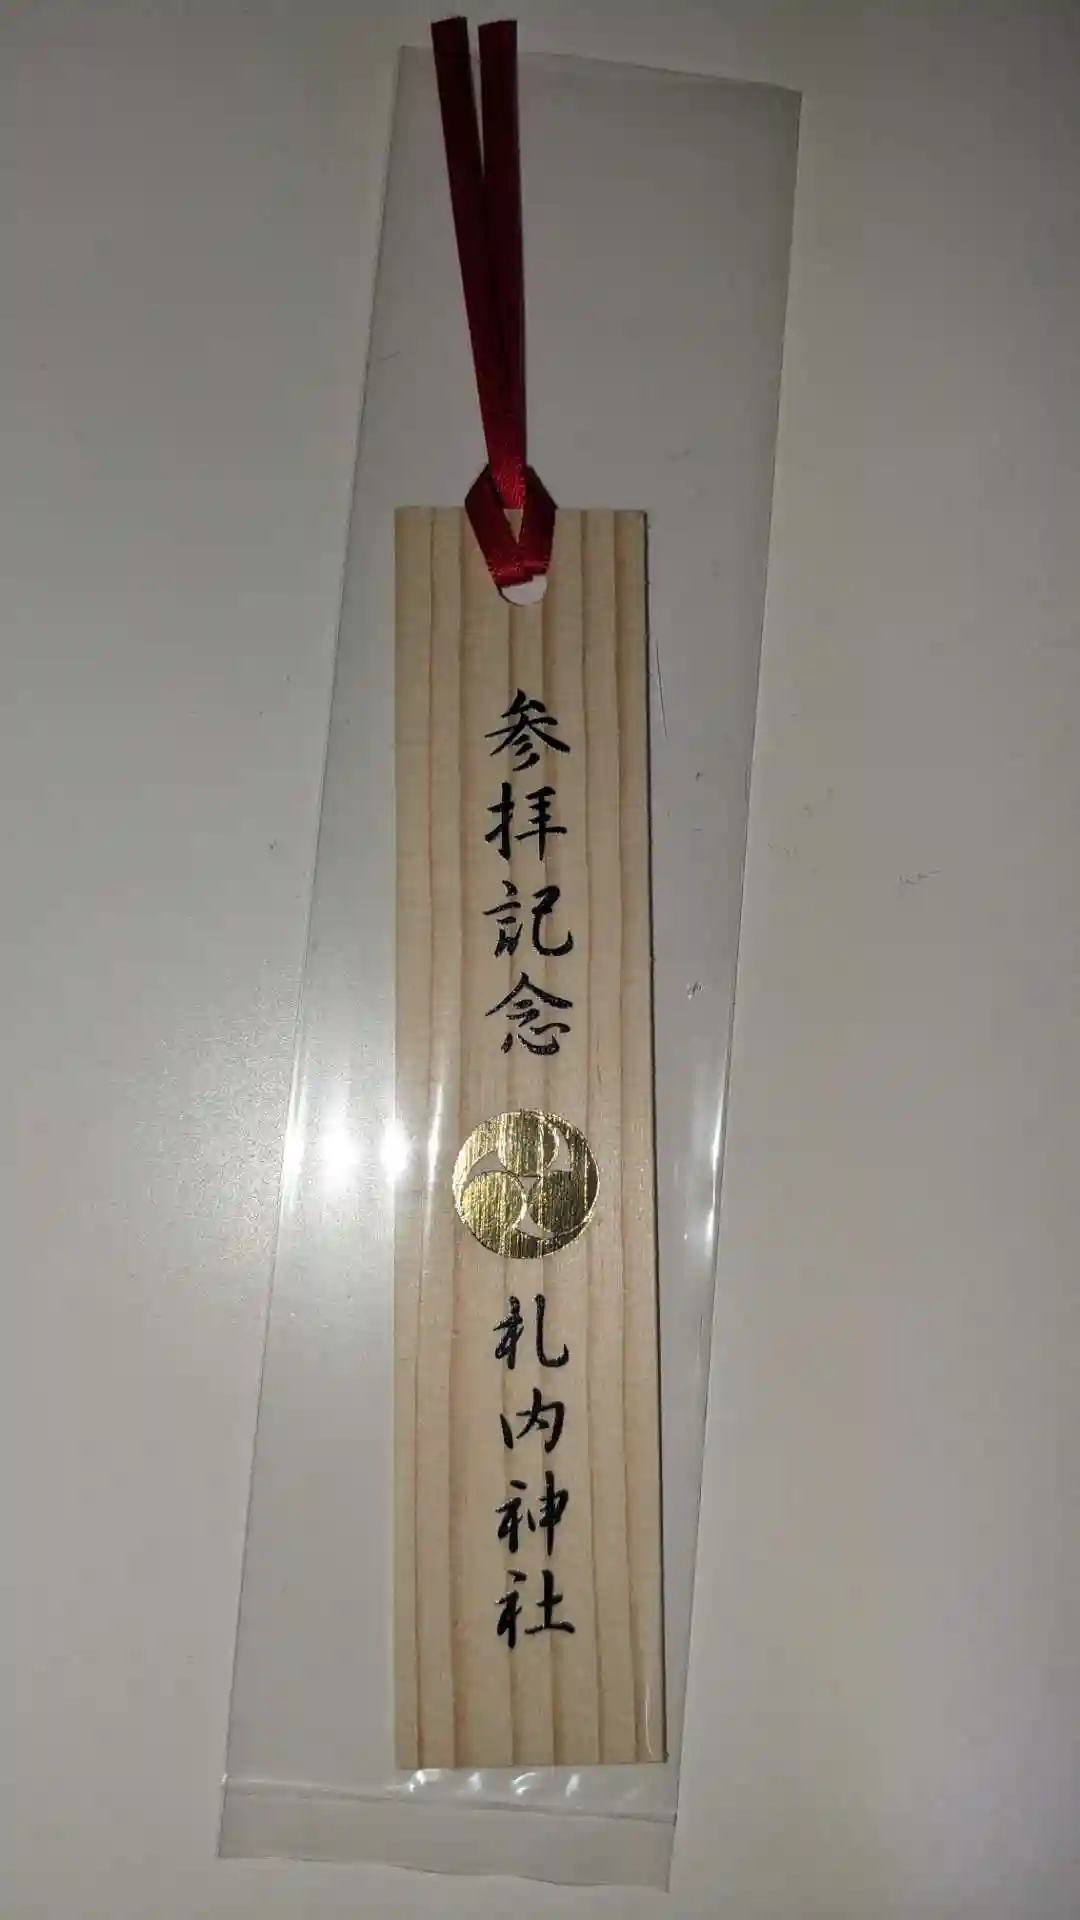 参拝記念
札内神社